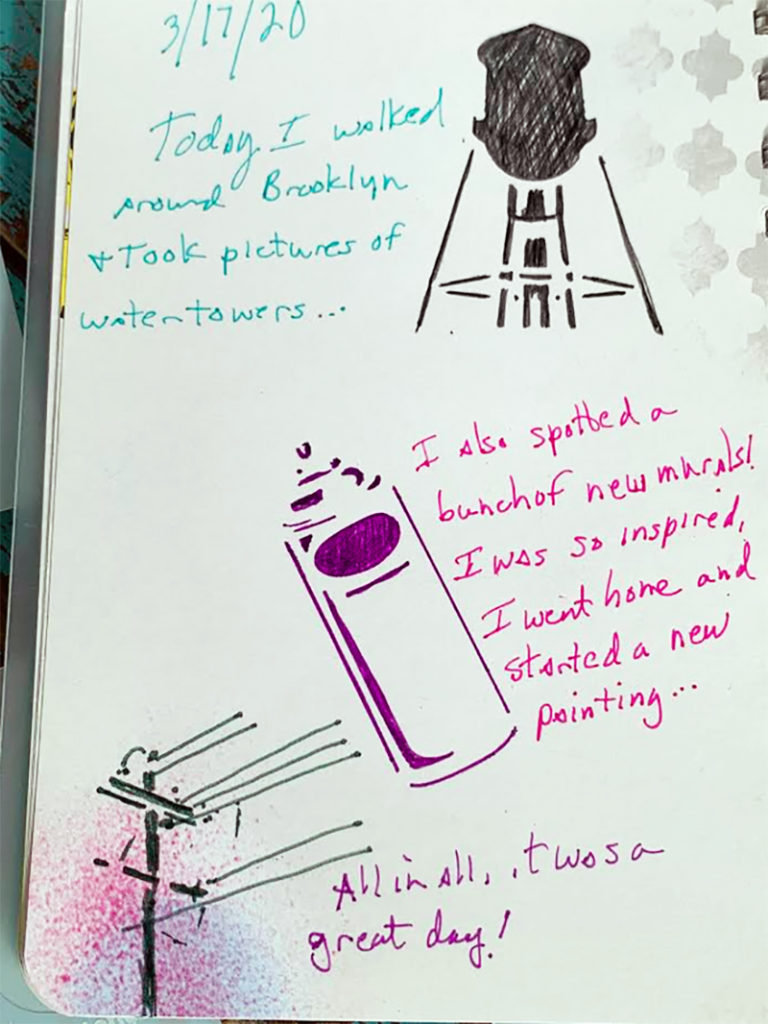 3/17/20
Today I walked
around Brooklyn
+ Took pictures of
watertowers...
I also spotted a
bunch of new murals!
I was so inspired,
I went home and
started a new
painting...
All in all, it was a
great day!